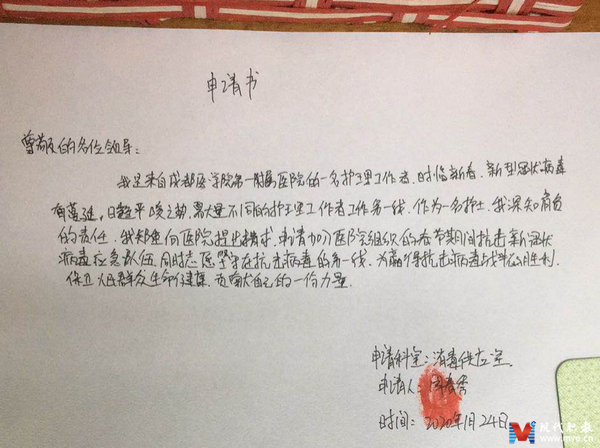 申请书
尊敬的各位领导：
我是来自成都医学院第一附属医院的一名护理工作者，时临新春，新型冠状病毒
有蔓延，日趋严峻之势，不同的护理工作者工作第一线，作为一名护士，我深知肩负
的责任，我郑重向医院提出请求，申请加入医院组织的春节期间抗击新冠状
病毒应急队伍，同时志愿坚守在抗击病毒的第一线，为赢得抗击病毒战胜利，
保卫人民群众生命健康，贡献自己的一份力量。
申请科室：消毒供应室
申请人：春秀
时间：2020年1月24日
现代职教
www.mre.cn